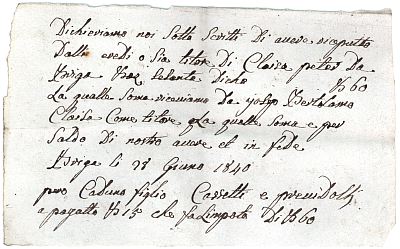 Dichieriamo noi Sotto Scritti Di avere riceputto
Dalli eredi o Sia titore Di Claisa peter Da
Briga Dicho 60
La qualle Soma riceviamo Da Bertolamo
Claisa Come titore qLa qualle Soma e per
Saldo Di nostro avere et in fede
Briga li 28 Giuno 1840
pero Caduno figlio Cassetti e
a pagatto 15 che fa Limpoto Di 60